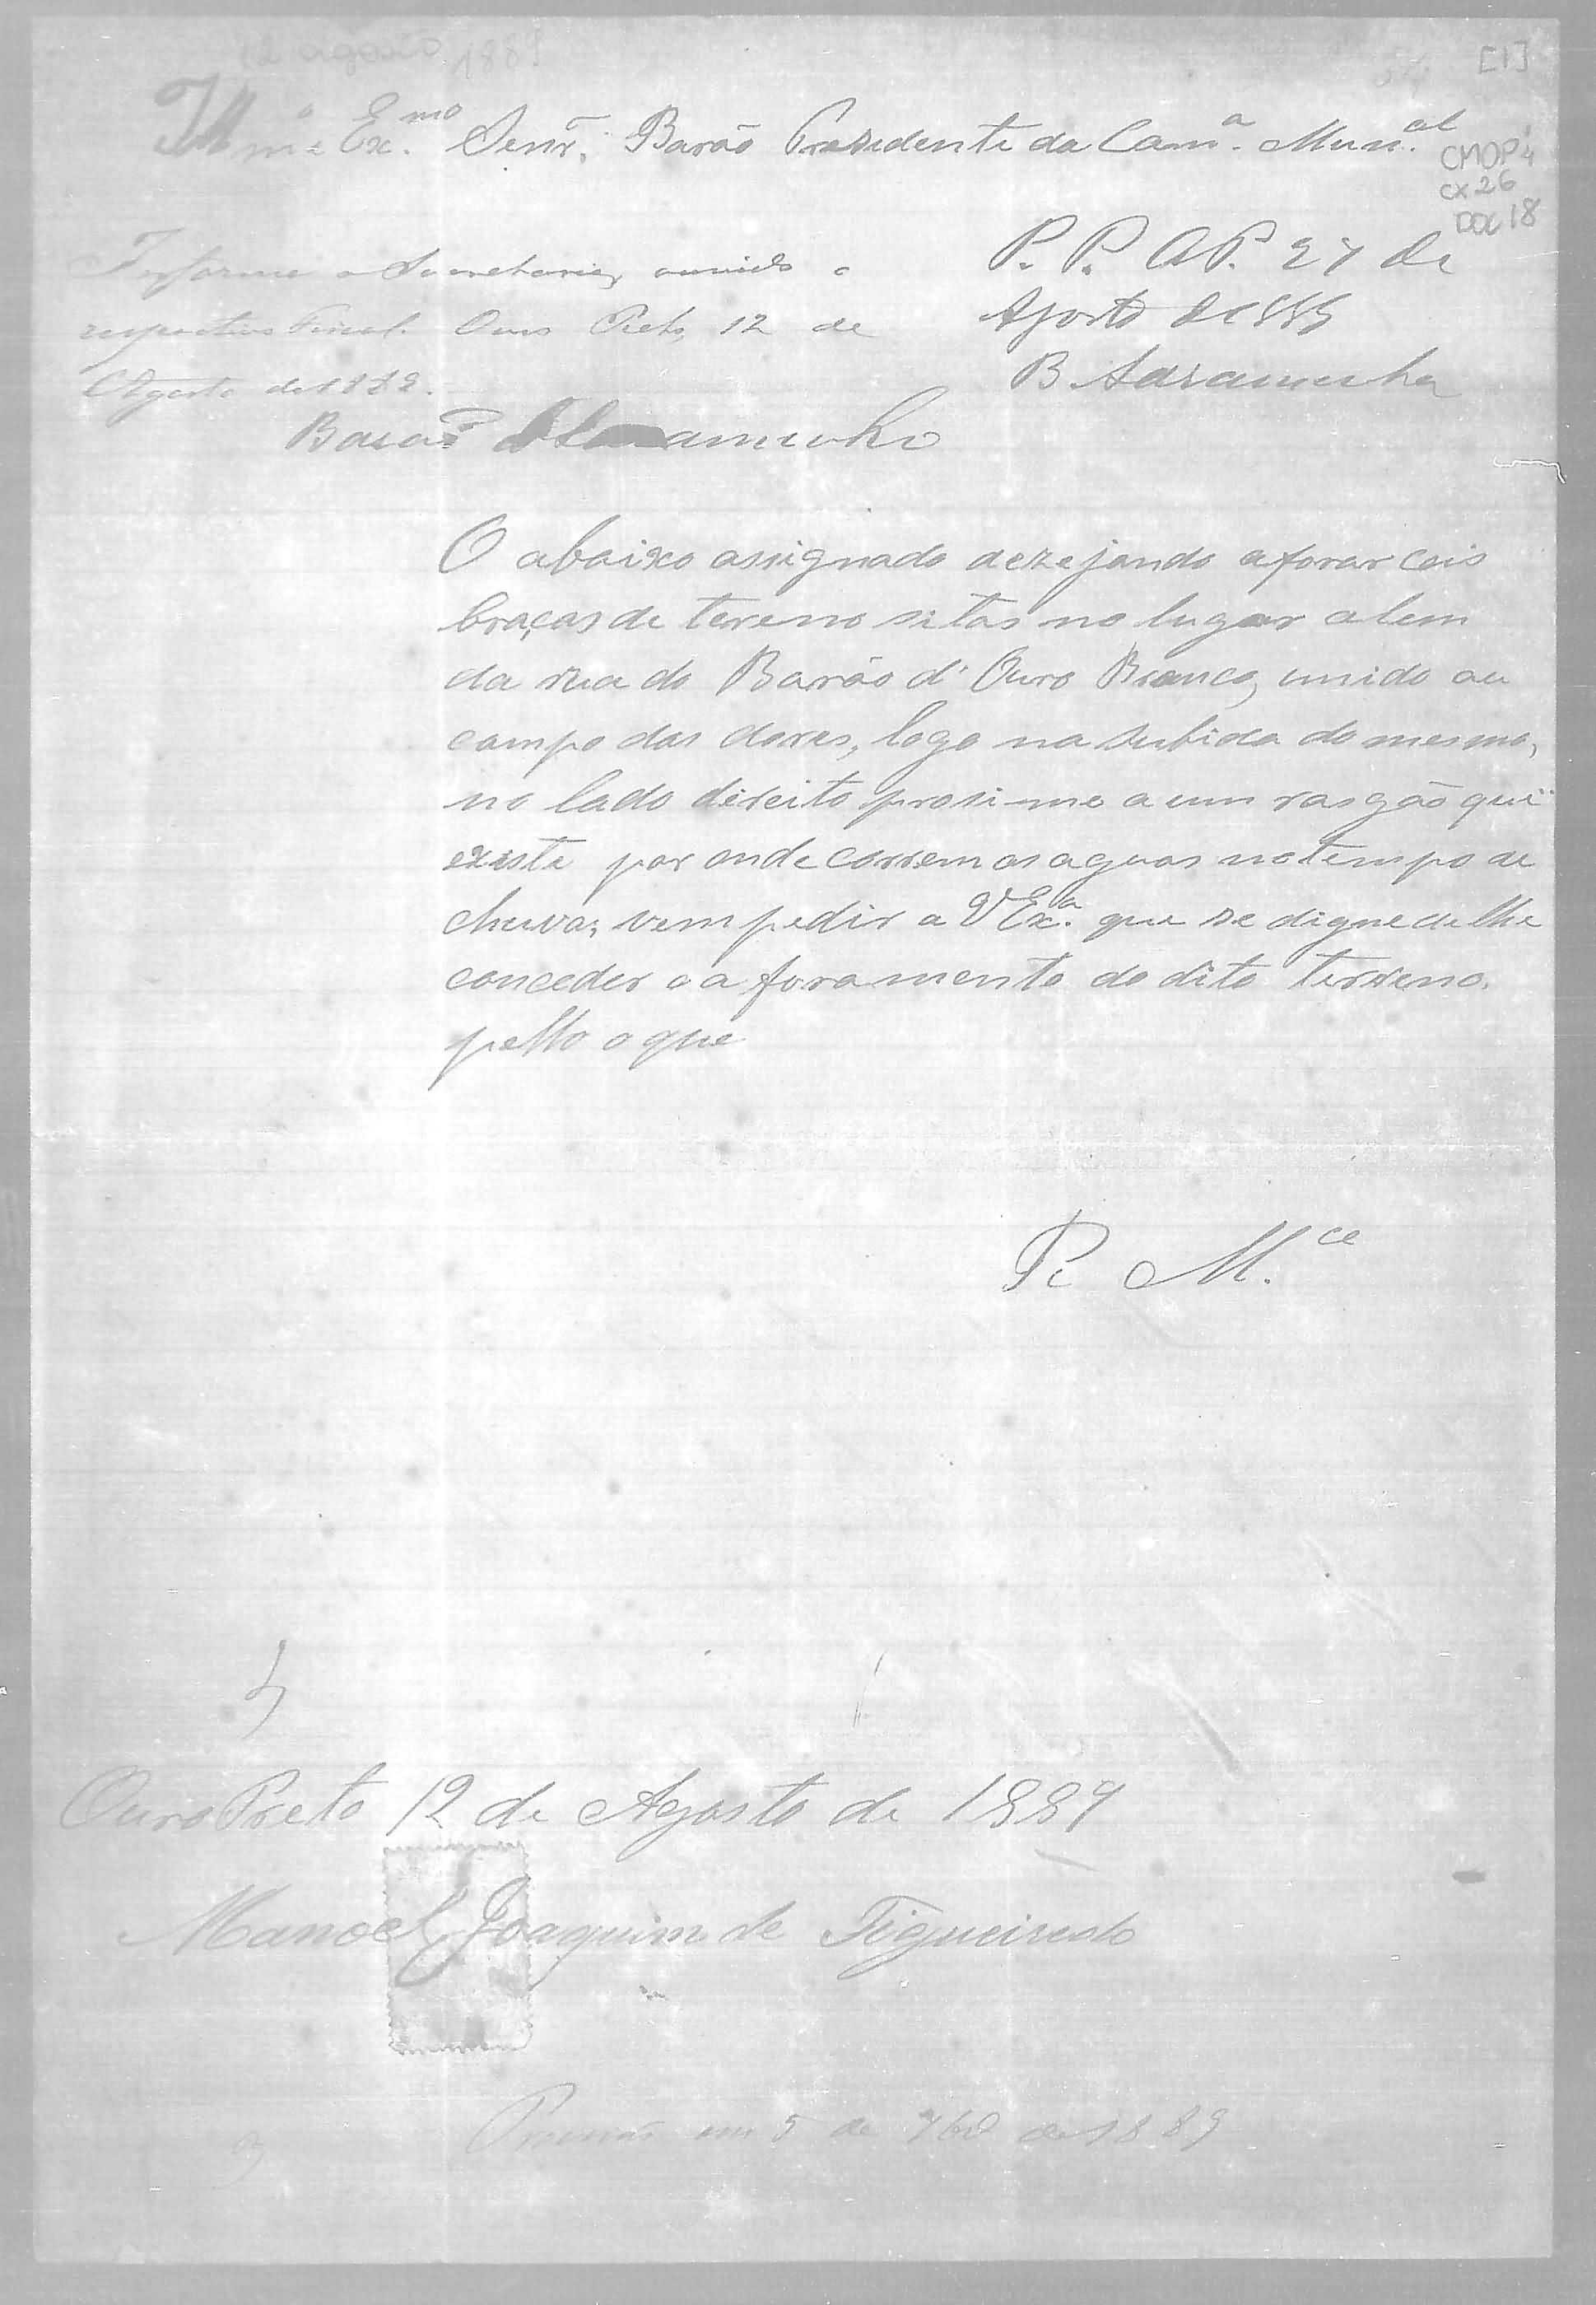 12 agosto 1889
[1]
Illmº Ex.mo Senr. Barão Presidente da Cam.a Mun.al
CMOP
CX 26
DOC 18
Informe a Secretaria, ouvido o
respectivo Fiscal. Ouro Preto, 12 de
Agosto de 1889.
Barão Saramenha
P. P. O P. 27 de
Agosto de 1889
B Saramenha
O abaixo assignado dezejando aforar ceis
braças de tereno sitas no lugar alem
da rua do Barrão d'Ouro Branco, unido au
campo das dores, logo na subida do mesmo,
no lado direito prosimo a um rasgão qui
existe por onde correm as aguas no tempo de
chuva; vem pedir a V Ex.a que se digne de lhe
conceder o aforamento do dito terreno.
pello o que
P. M.ce
Ouro Preto 12 de Agosto de 1889
Manoel Joaquim de Figueiredo
em 5 de 7bro de 1889